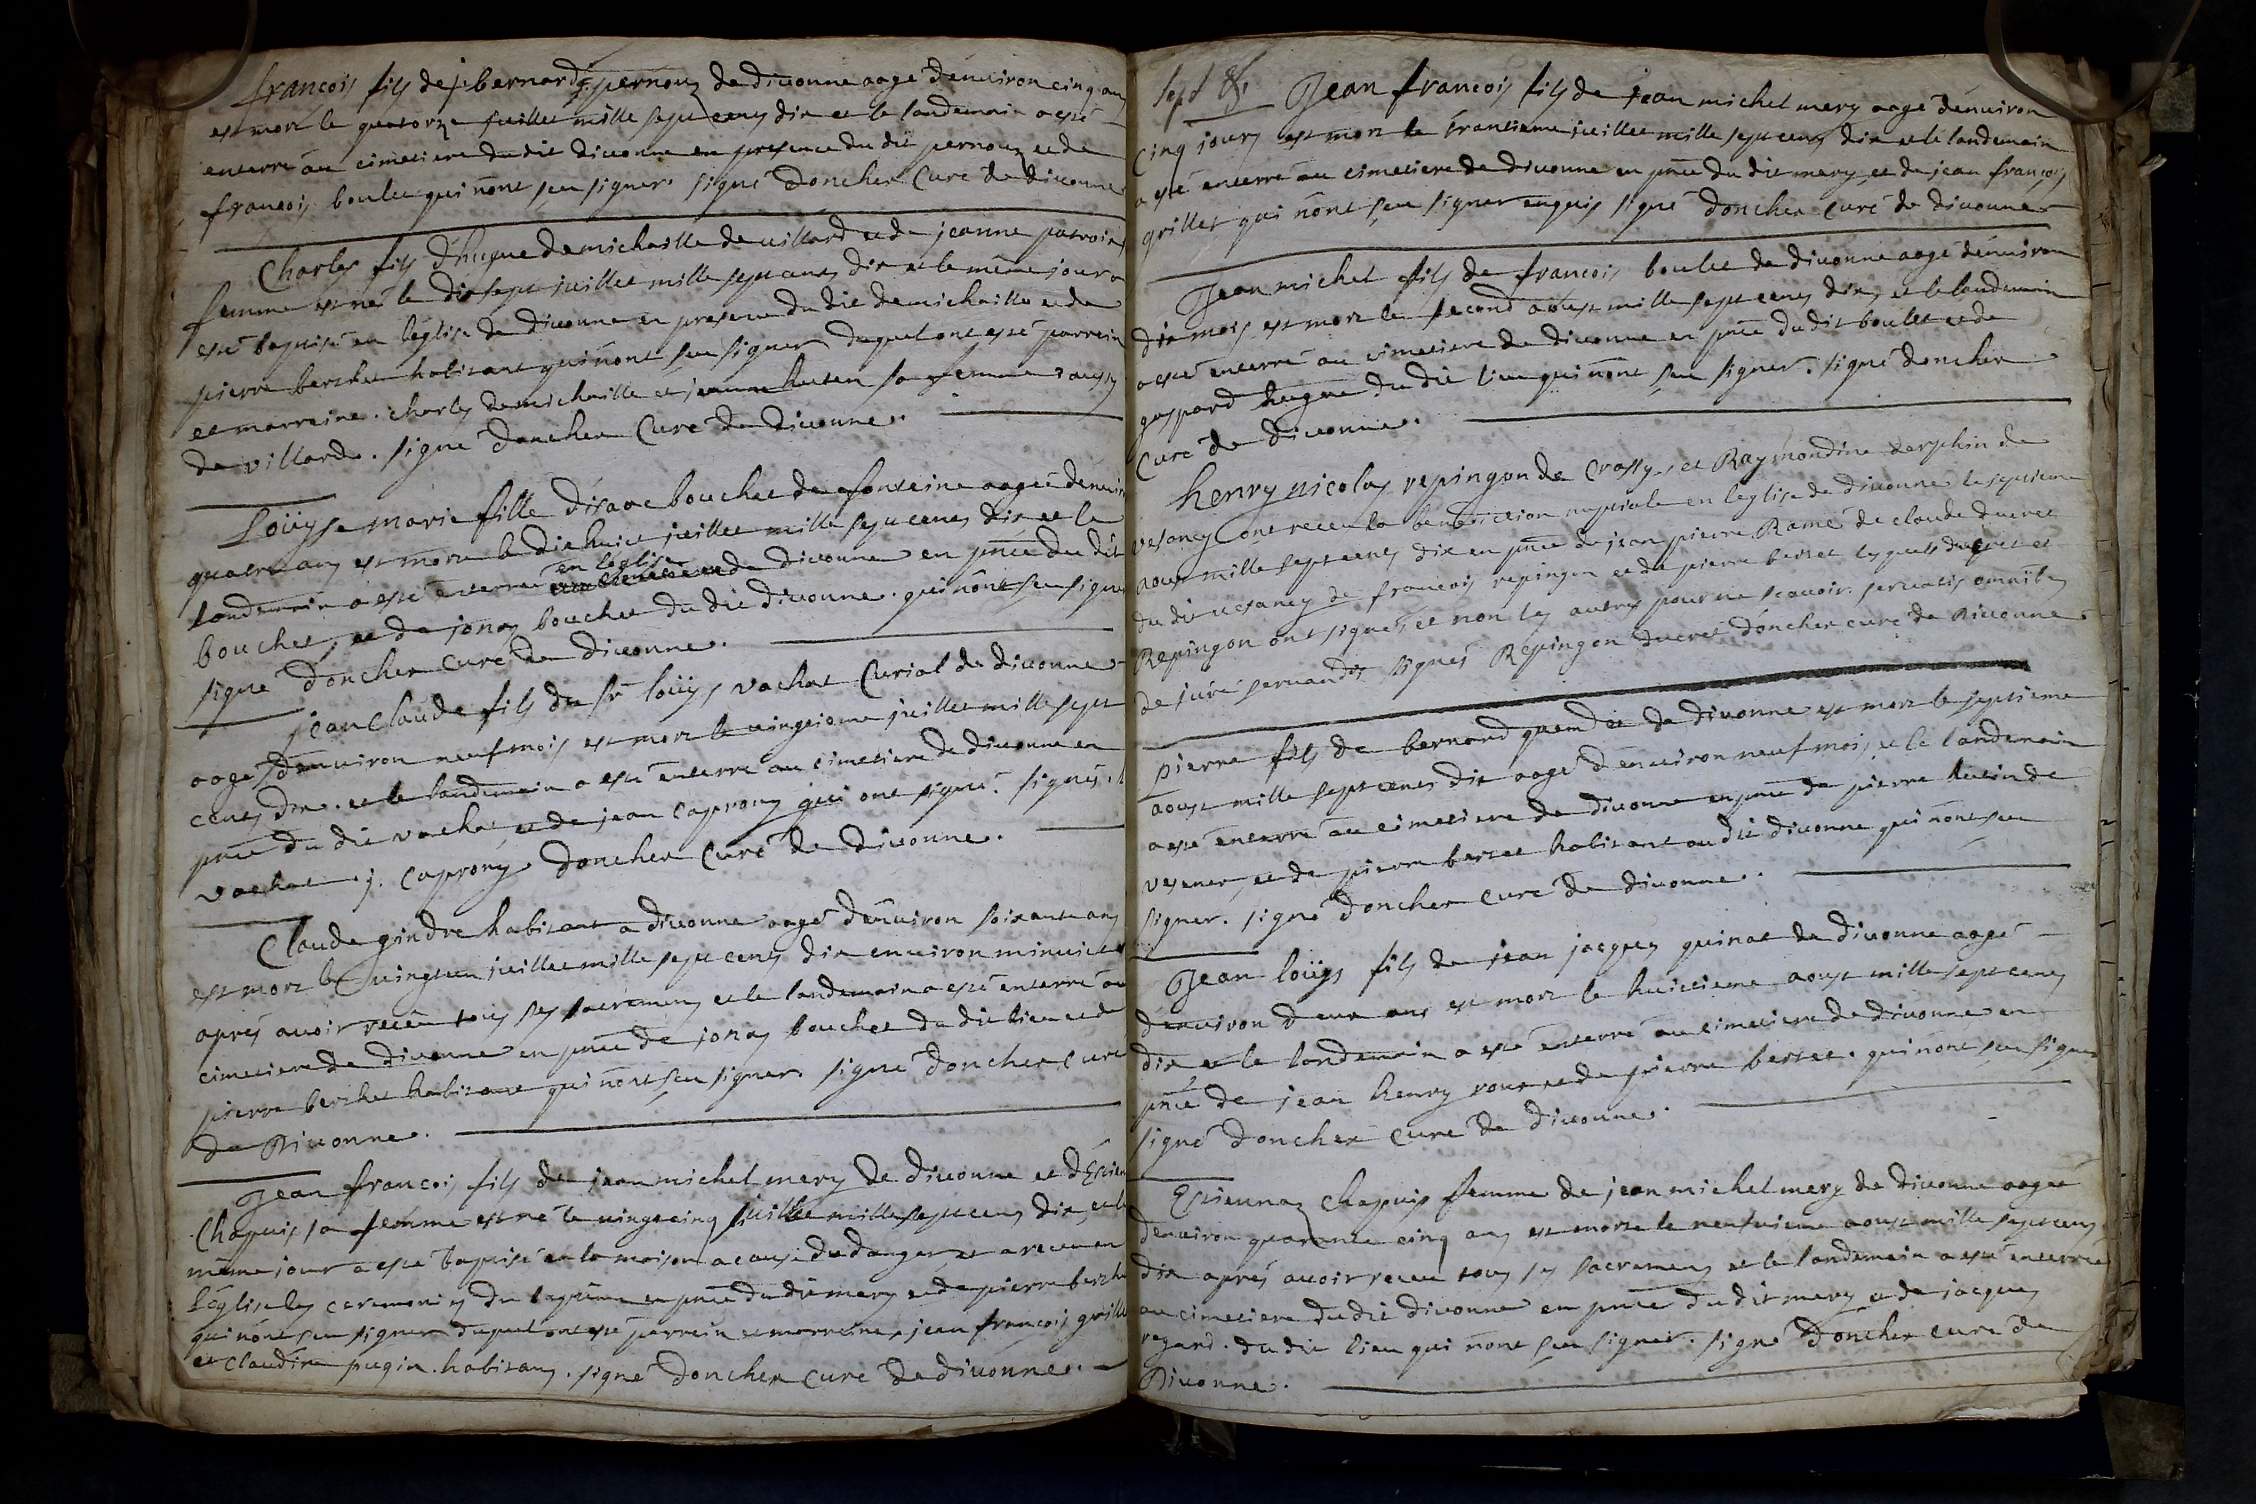 francois fils de j: bernard pernouz de diuonne aagé d'enuiron cinq ans
est mort le quatorze juillet mille sept cens dix et le landemain a esté
enterré au cimetiere dudit diuonne en presence du dit pernouz et de
francois boulet qui n'ont sceu signer. signé Doncher Curé de diuonne
Charles fils d'hugue demichaille de uillard et de jeanne
femme est né le dix sept juillet mille sept cens dix et le même jour a
esté baptisé en l'eglise de diuonne en presence du dit demichaille et de
pierre berthet habitant qui n'ont sceu signer duquel ont esté parrein
et marreine. charles demichaille et jeanne sa femme aussy
de villard. signé Doncher Curé de diuonne.
Loüyse marie fille d'isaac bouchet de fonteine aagée d'enuiron
quatre ans est morte le dix huict juillet mille sept cens dix et le
landemain a esté enterrée en l'eglise de diuonne en pñce du dit
bouchet, et de jonas bouchet du dit diuonne. qui n'ont sceu signer
signé Doncher Curé de diuonne.
jean Claude fils du sr loüys vachat Curial de diuonne
aagé d'enuiron neuf mois est mort le uingtieme juillet mille sept
cens dix. et le landemain a esté enterré au cimetiere de diuonne en
pñce du dit vachat et de jean caprony qui ont signé. signés. l
vachat. j. caprony Doncher Curé de diuonne.
Claude gindre habitant a diuonne aagé d'enuiron soixante ans
est mort le uingt un juillet mille sept cens dix enuiron minuict
aprés auoir receu tous ses sacremens et le landemain a esté enterré au
cimetiere de diuonne en pñce de jonas bouchet du dit lieu et de
pierre berthet habitant qui n'ont sceu signer. signé Doncher Curé
de Diuonne.
Jean francois fils de jean michel mery de diuonne et d'Estien
Chapuis sa femme est né le uingt cinq juillet mille sept cens dix, et le
même jour a esté baptisé en la maison a cause du danger et a receu en
l'eglise les ceremonies du baptême en pñce du dit mery et de pierre berthe
qui n'ont sceu signer duquel ont esté parrein et marreine, jean françois grille
et claudine pugin. habitans. signé Doncher Curé de diuonne.
sept
Jean francois fils de jean michel mery aagé d'enuiron
cinq jours est mort le trantieme juillet mille sept cens dix et le landemain
a esté enterré au cimetiere de diuonne en pñce du dit mery, et de jean françois
grillet qui n'ont sceu signer enquis signé Doncher Curé de diuonne
Jean michel fils de francois boulet de diuonne aagé d'enuiron
dix mois est mort le second aoust mille sept cens dix, et le landemain
a esté enterré au cimetiere de diuonne en pñce du dit boulet et de
gaspard hugue du dit lieu qui n'ont sceu signer. signé Doncher
Curé de diuonne.
henry nicolas repingon de Crassy, et Raymondine derphin de
vesancy ont receu la benediction nuptiale en l'eglise de diuonne le septieme
aoust mille sept cens dix en pñce de jean pierre Ramé de claude ducret
du dit uesancy de francois repingon et de pierre bertet lesquels ducret et
Repingon ont signés, et non les autres pour ne scauoir. seruatis omnibus
de jure seruandis signés Repingon ducret doncher curé de Diuonne
pierre fils de bernard de diuonne est mort le septieme
aoust mille sept cens dix aagé d'enuiron neuf mois, et le landemain
a esté enterré au cimetiere de diuonne en pñce de pierre de
vesenex, et de pierre bertet habitant au dit diuonne qui n'ont sceu
signer. signé doncher curé de diuonne.
Jean loüys fils de jean jacques quinat de diuonne aagé
d'enuiron deux ans est mort le huictieme aoust mille sept cens
dix et le landemain a esté enterré au cimetiere de diuonne en
pñce de jean henry roux et de pierre bertet. qui n'ont sceu signer
signé Doncher curé de diuonne.
Estiennaz chapuis femme de jean michel mery de diuonne aagée
d'enuiron quarante cinq ans est morte le neufuieme aoust mille sept cens
dix aprés auoir receu tous ses sacremens et le landemain a esté enterrée
au cimetiere du dit diuonne en pñce du dit mery et de jacques
regard. du dit lieu qui n'ont sceu signer. signé doncher curé de
Diuonne.